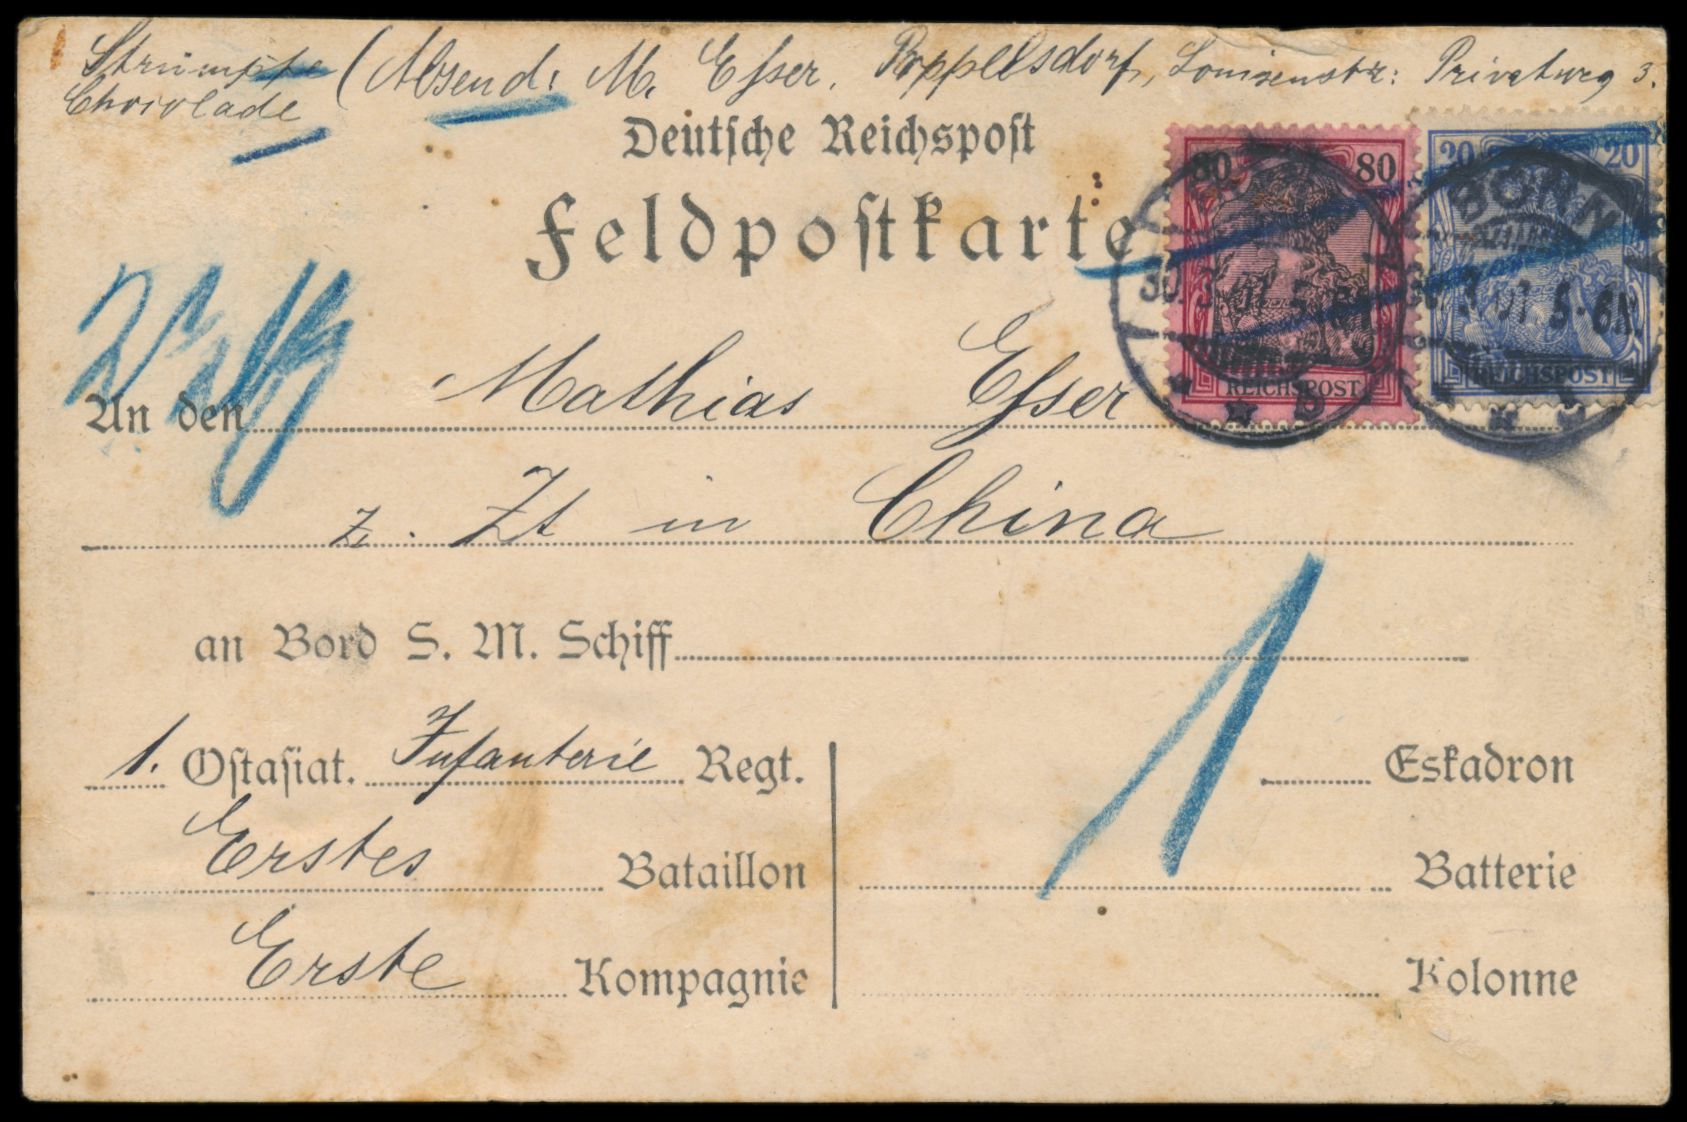 Strümpfe (Absend: M. Esser. Poppelsdorf, Louisenstr: Privatweg 3.
Chocolade
Deutsche Reichspost
Feldpostkarte
80 80
REICHSPOST
20 20
REICHSPOST
30. 3. 01 5-6N.
BONN
30. 3. 01 5-6N.
An den Mathias Esser
z. Zt in China
an Bord S. M. Schiff
1. Ostasiat. Infanterie Regt.
Eskadron
Erstes Bataillon
Batterie
Erste Kompagnie
Kolonne
1